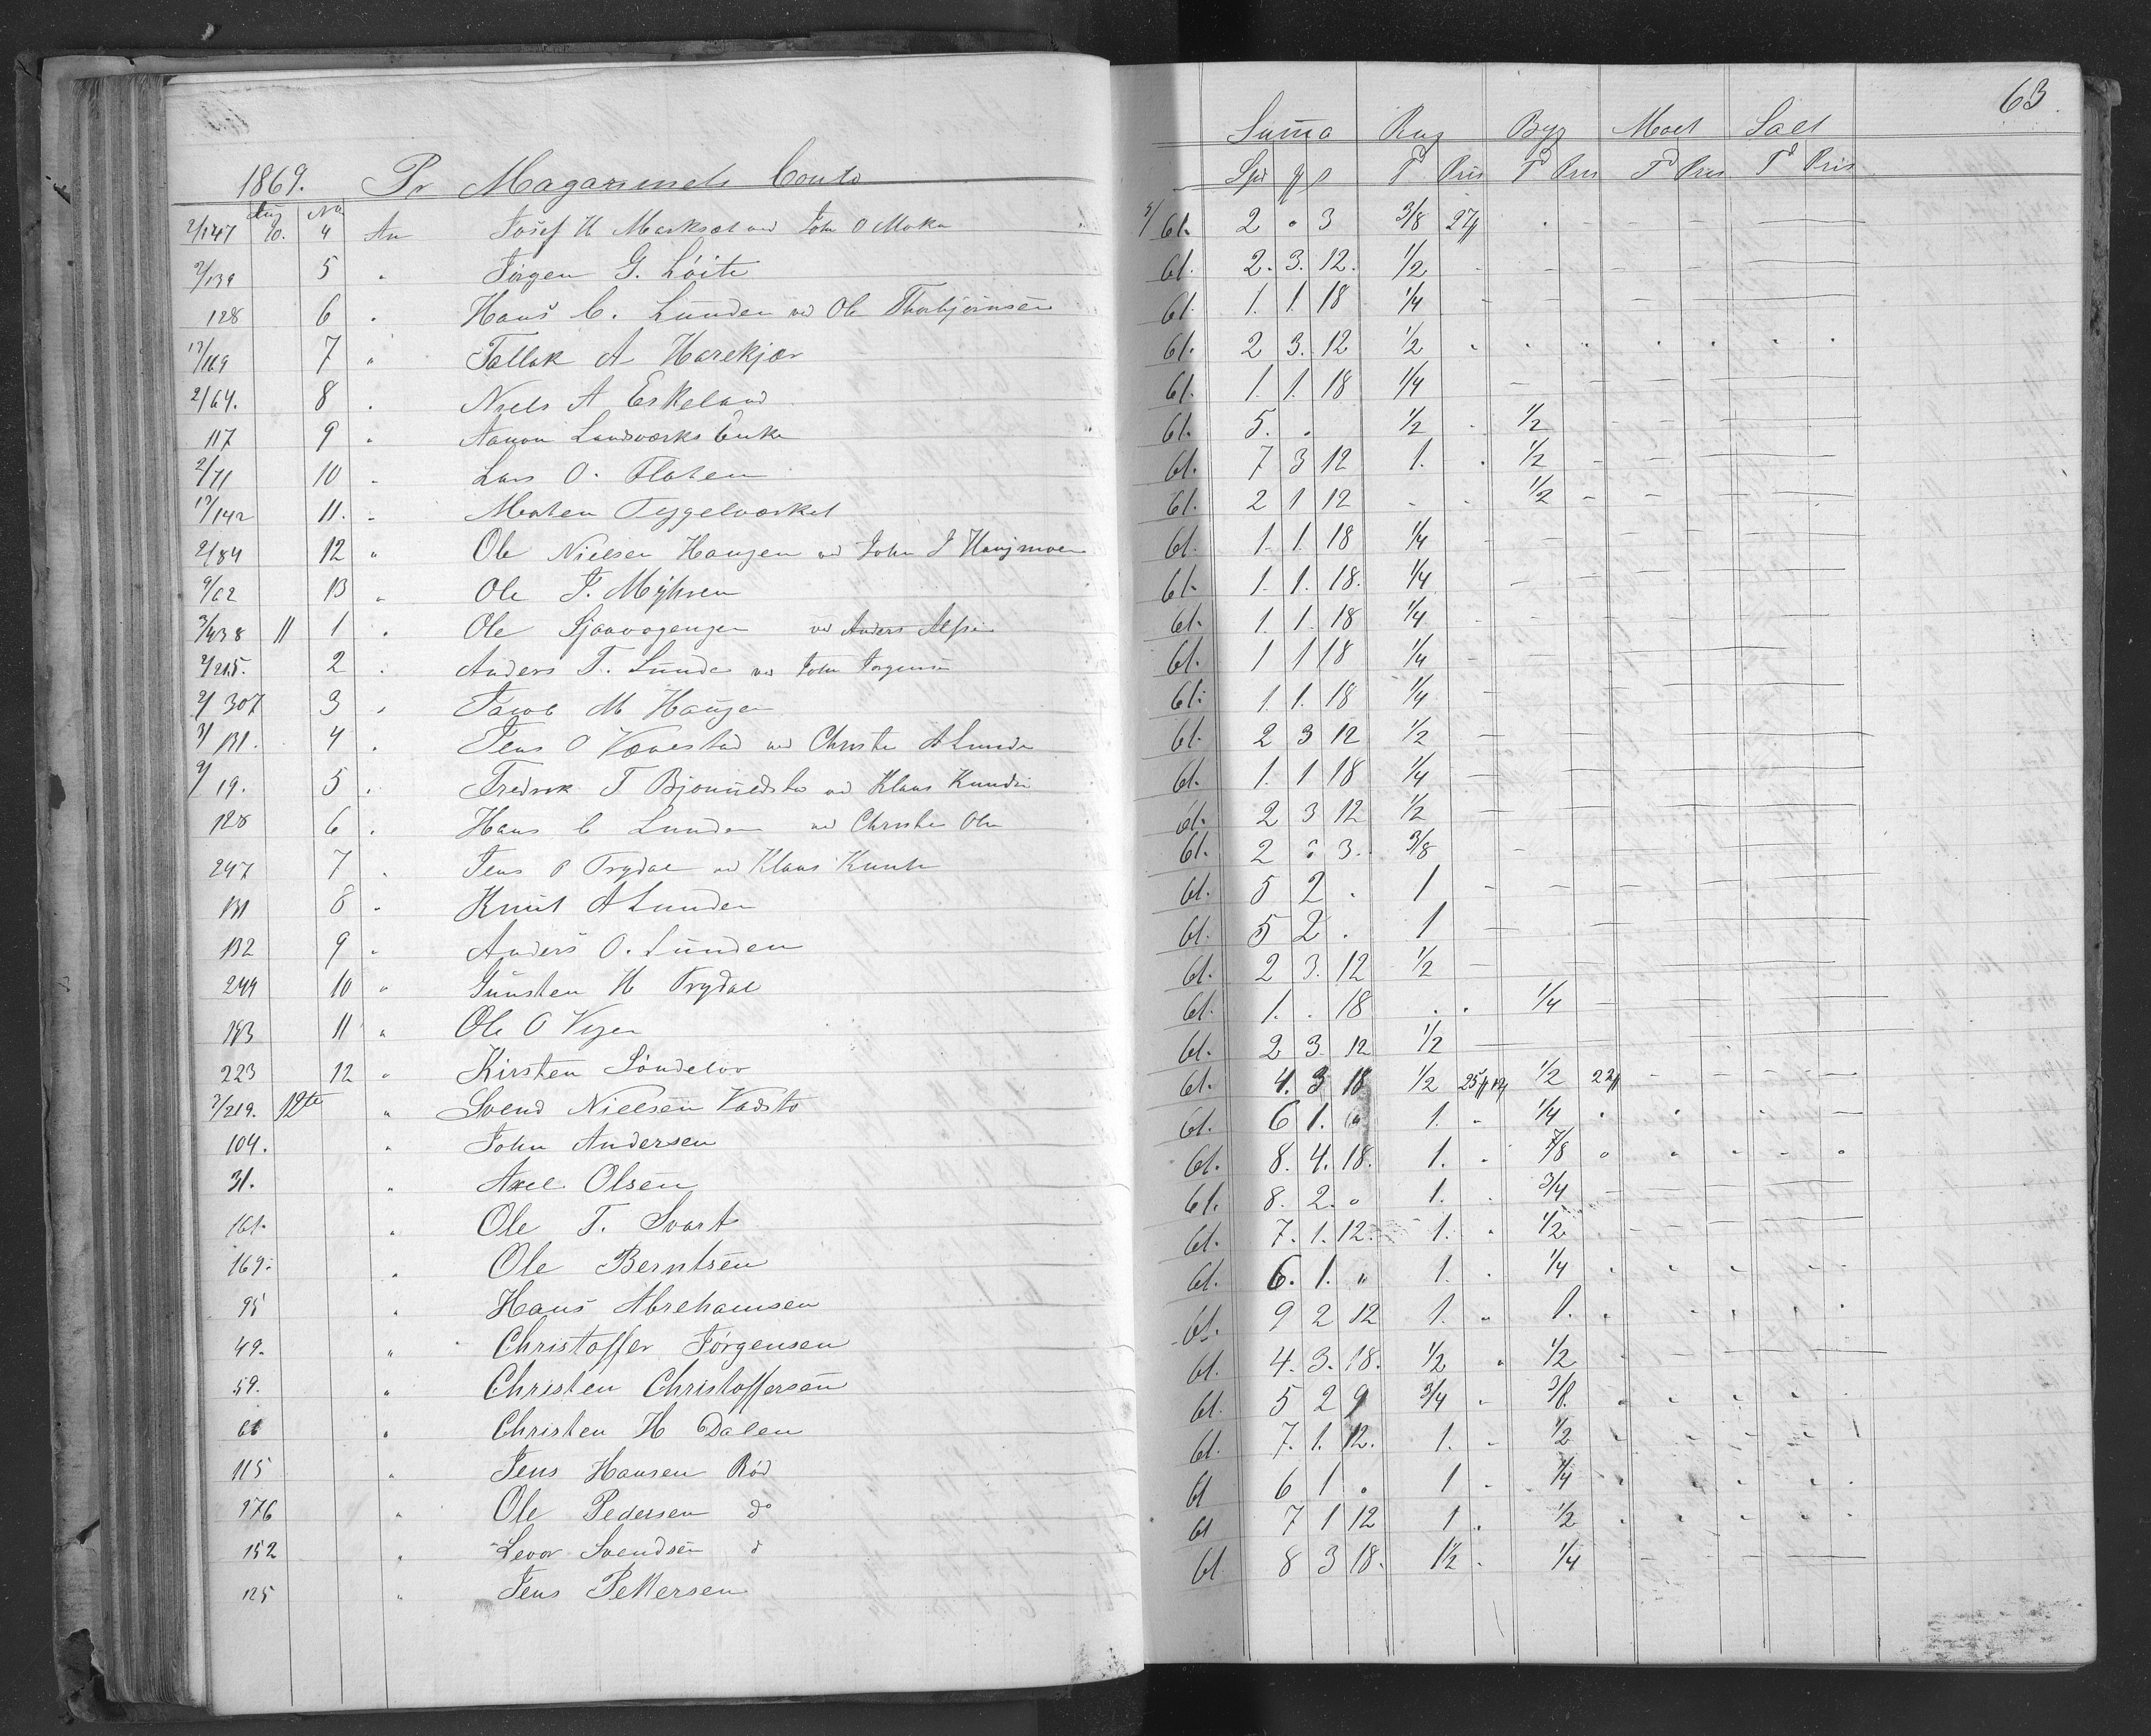 63.
1869. Pr Magazinets Conto
Suma Rug Byg Malt Salt
Spd Td Pris Td Pris Td Pris Td Pris
Aug No
2/147 10. 4 An Josef H Marksæt ved John O Moka 61. 2 " 3 3/8 27
2/139 5 " Jørgen G. Løite 61. 2. 3. 12. 1/2
128 6 " Hans C. Lunden ved Ole Thorbjørnsen 61. 1. 1. 18 1/4
/169 7 " Tallak A Harekjær 61. 2 3. 12 1/2
2/64. 8 " Niels A Eskeland 61. 1. 1. 18 1/4
117 9 " Aanon Landværks Enke 61. 5. . 1/2 1/2
2/71 10 " Lars O. Flaten 61. 7 3 12 1. 1/2
/142 11. " Morten Teygelværket 61. 2 1 12 - - 1/2
2/84 12 " Ole Nielsen Haugen ved John J Haugmoen 61. 1. 1. 18 1/4
/62 13 " Ole J. Myhren 61. 1. 1. 18. 1/4
3/438 11 1 " Ole Sjaavaagengen ved Anders 61. 1. 1. 18 1/4
2/215. 2 " Anders T. Lunde ved John Jørgensen 61. 1 1 18 1/4
2/307 3 " Jacob M Haugen 61. 1. 1. 18 1/4
2/131. 4 " Jens O Vævestad ved Christen A Lunde 61. 2 3 12 1/2
2/19. 5 " Fredrik T ved Klaus Knudsen 61. 1. 1 18 1/4
128 6 " Hans C Lunden ved Christen Olsen 61. 2 3 12 1/2
247 7 " Jens O Trydal ved Klaus 61. 2 " 3. 3/8
131 8 " Knut A Lunden 61. 5 2 . 1
132 9 " Anders O. Lunden 61. 5 2 . 1
244 10 " Gunsten H Trydal 61. 2 3. 12 1/2
183 11 " Ole O Vegen 61. 1. . 18 . . 1/4
223 12 " Kirsten Søndelov 61. 2 3. 12 1/2
2/219. 12te " Svend Nielsen Vadsto 61. 4. 3 18 1/2 25 12 1/2 22
104. " John Andersen 61. 6 1. " 1. 1/4
31. " Axel Olsen 61. 8. 4. 18. 1. 7/8
161. " Ole T. Svart 61. 8. 2. " 1. 3/4
169. " Ole Berntsen 61. 7. 1. 12. 1. 1/2
95 " Hans Abrehamsen 61. 6. 1. " 1. 1/4
49. " Christoffer Jørgensen 61. 9 2 12 1. 1.
59. " Christen Christoffersen 61. 4. 3. 18. 1/2 1/2
61 " Christen H Dalen 61. 5 2 9 3/4 3/8.
115 " Jens Hansen Rød 61. 7. 1. 12. 1. 1/2
276 " Ole Pedersen do 61 6 1 . 1 1/4
152 " Levor Svendsen d 61 7 1 12 1 . 1/2
125 " Jens Pettersen 61 8 3 18. 1 1/2 1/4